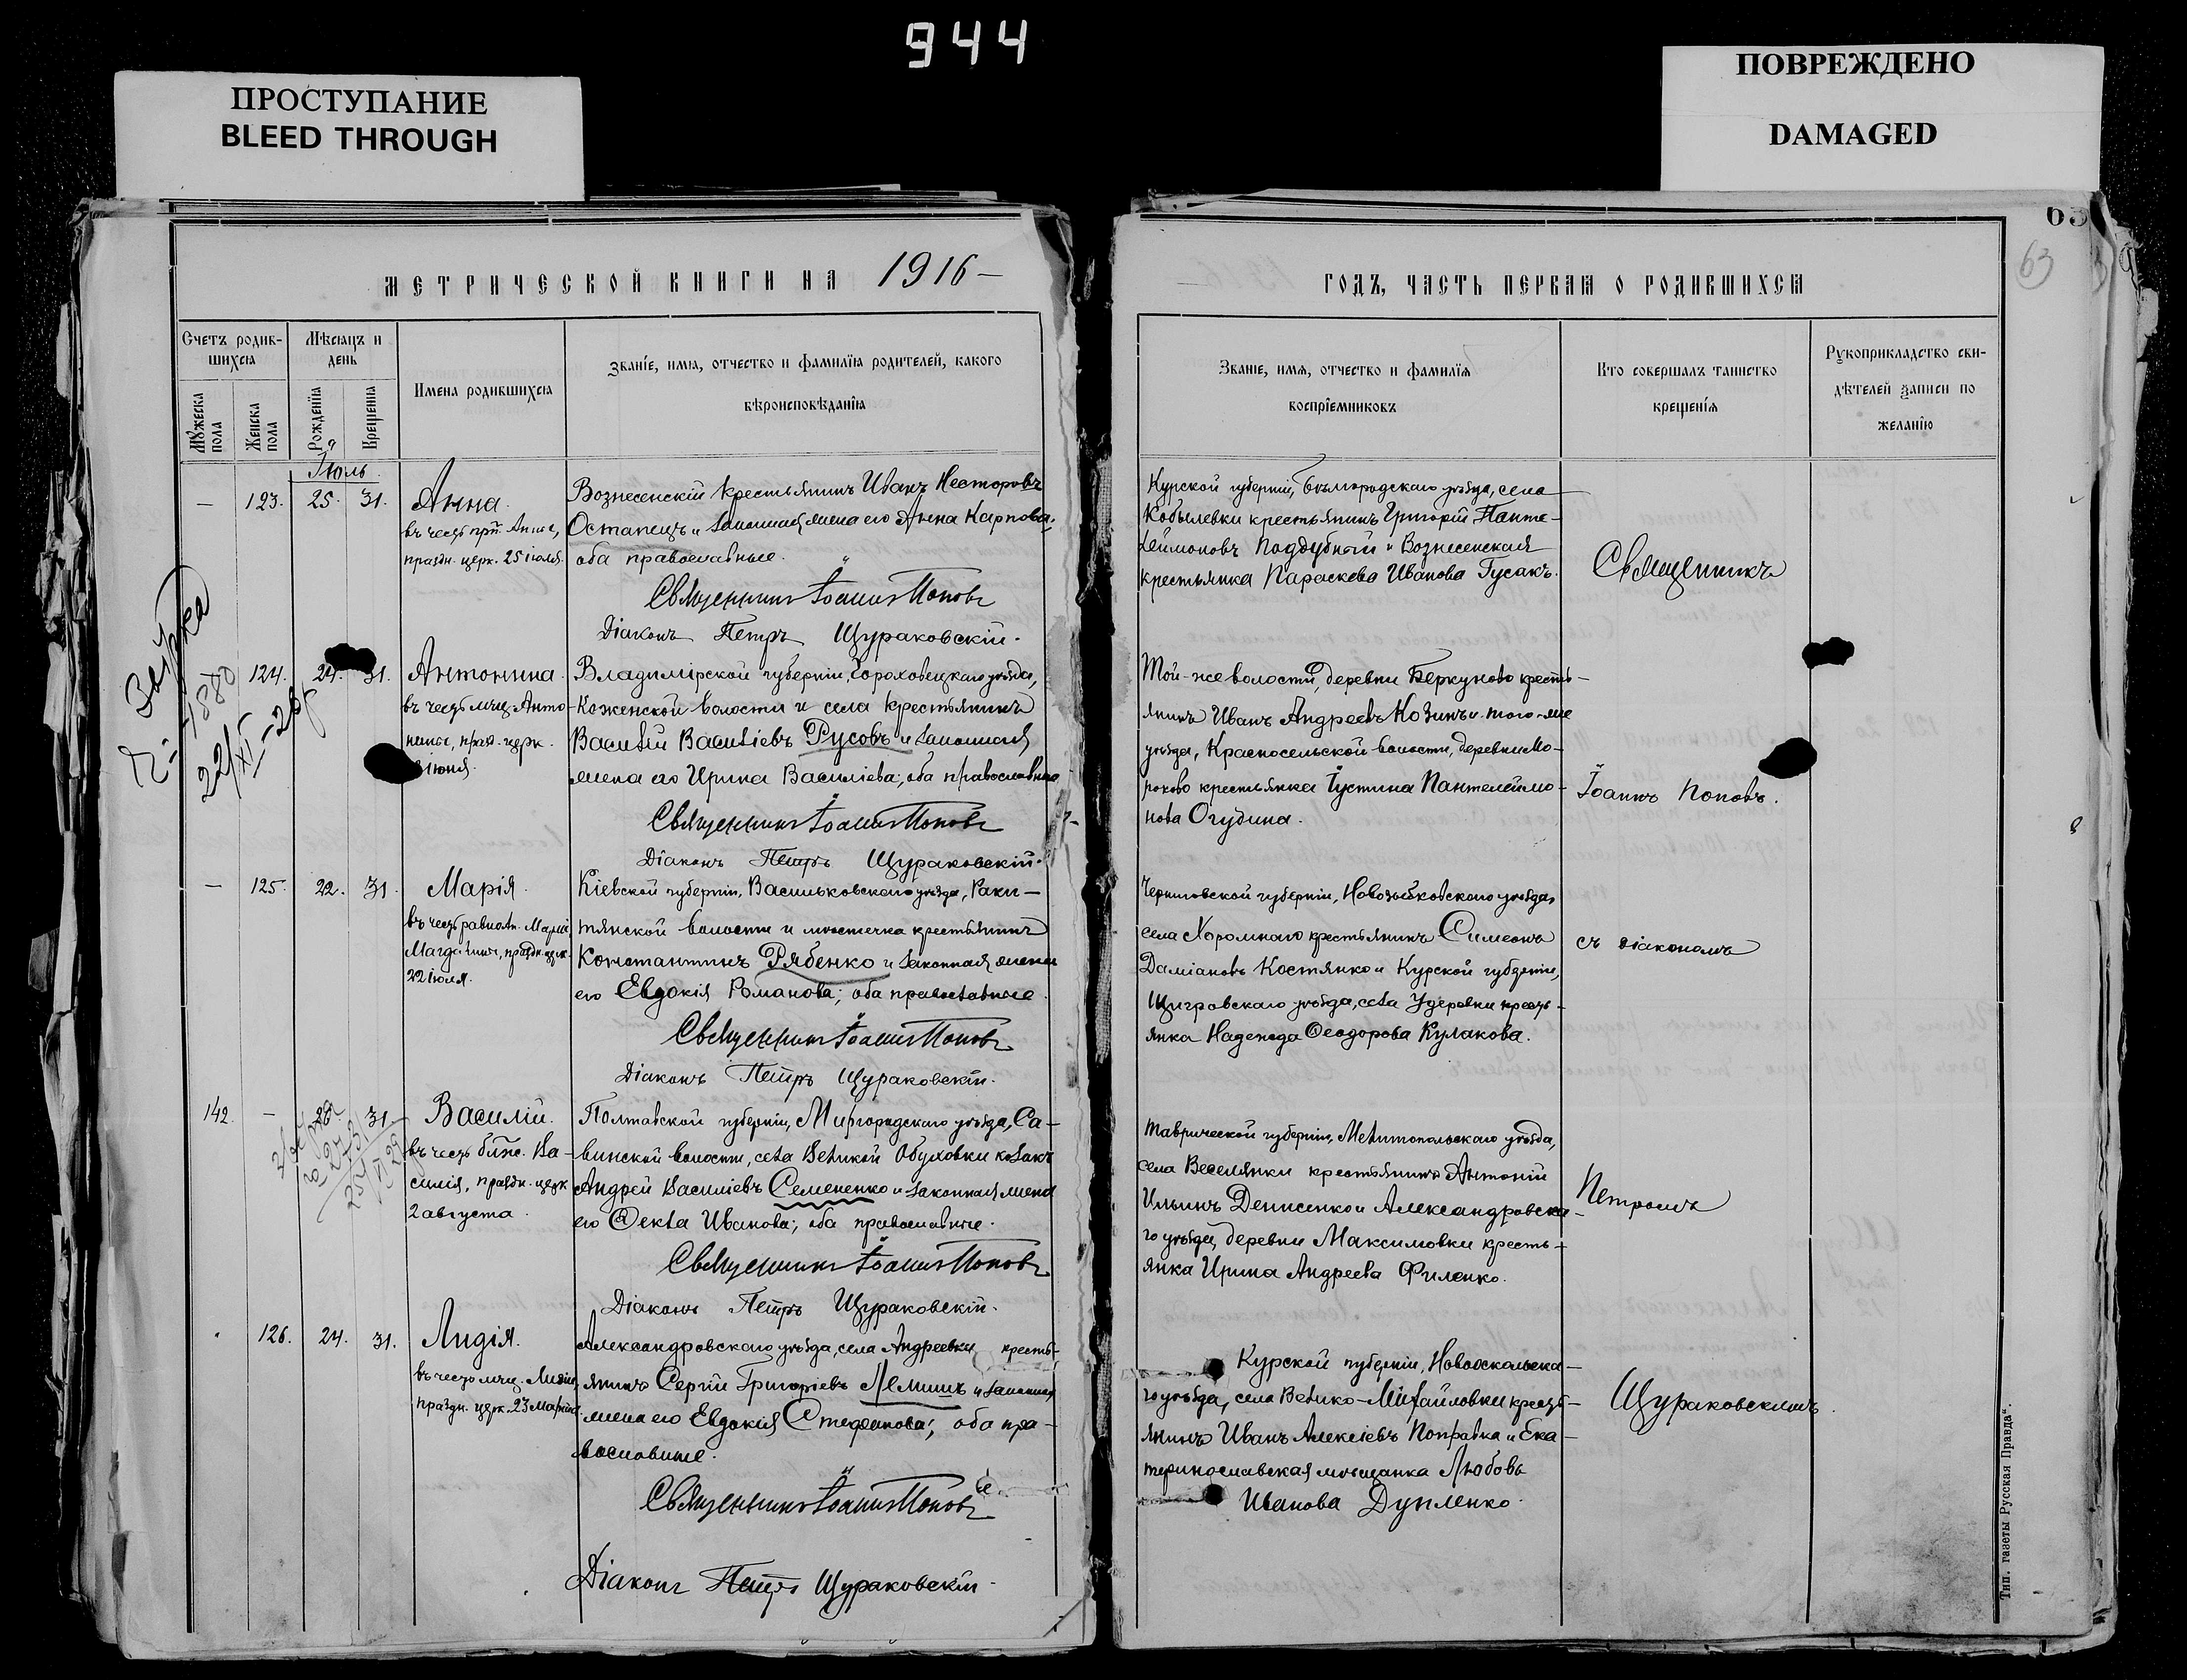 944
ПРОСТУПАНИЕ
BLEED THROUGH
ПОВРЕЖДЕНО
DAMAGED
63
63
МЕТРИЧЕСКОЙ КНИГИ НА 1916 –
Счетъ родив-
шихся
Мѣсяцъ и
день
Мужеска
пола
Женска
пола
Рожденія
Крещенія
Имена родившихся
Званіе, имя, отчество и фамилія родителей, какого
вѣроисповѣданія
Іюль
– 123. 25. 31.
Анна.
въ честь прп. Анны,
праздн. церк. 25 іюля.
Вознесенскій крестьянинъ Иванъ Несторовъ
Остапецъ и законная жена его Анна Карпова;
оба православные.
Священникъ Іоаннъ Поповъ
Діаконъ Петръ Щураковскій.
124. 24. 31.
Антонина.
въ честь мчц. Анто-
нины, празд. церк.
іюня.
Владимірской губерніи, Гороховецкаго уѣзда,
Кожинской волости и села крестьянинъ
Василій Василіевъ Русовъ и законная
жена его Ирина Василіева; оба православные
Священникъ Іоаннъ Поповъ
Діаконъ Петръ Щураковскій.
– 125. 22. 31.
Марія.
въ честь равноап. Маріи
Магдалины, праздн. церк.
22 іюля.
Кіевской губерніи, Васильковскаго уѣзда, Раки-
тянской волости и мѣстечка крестьянинъ
Константинъ Рябенко и законная жена
его Евдокія Романова; оба православные.
Священникъ Іоаннъ Поповъ
Діаконъ Петръ Щураковскій.
142. – 28. 31.
Василій.
въ честь блж. Ва-
силія, праздн. церк
2 августа.
Полтавской губерніи, Миргородскаго уѣзда, Са-
винской волости, села Великой Обуховки козакъ
Андрей Василіевъ Семененко и законная жена
его Ѳекла Иванова; оба православные.
Священникъ Іоаннъ Поповъ
Діаконъ Петръ Щураковскій.
126. 24. 31.
Лидія.
въ честь мчц. Лидіи,
праздн. церк. 23 Марта
Александровскаго уѣзда, села Андреевки кресть-
янинъ Сергій Григоріевъ Лемишъ и законная
жена его Евдокія Стефанова; оба пра-
вославные.
Священникъ Іоаннъ Поповъ
Діаконъ Петръ Щураковскій.
22/XI-28
ГОДЪ, ЧАСТЬ ПЕРВАЯ О РОДИВШИХСЯ
Званіе, имя, отчество и фамилія
воспріемниковъ
Кто совершалъ таинство
крещенія
Рукоприкладство сви-
дѣтелей записи по
желанію
Курской губерніи, Бѣлгородскаго уѣзда, села
Кобылевки крестьянинъ Григорій Панте-
леймоновъ Поддубный и Вознесенская
крестьянка Параскева Иванова Гусакъ.
Той-же волости, деревни Беркуново кресть-
янинъ Иванъ Андреевъ Козинъ и того-же
уѣзда, Красносельской волости, деревни Мо-
роково крестьянка Іустина Пантелеймо-
нова Огудина.
Черниговской губерніи, Новозыбковскаго уѣзда,
села Хоромнаго крестьянинъ Симеонъ
Даміановъ Костянко и Курской губерніи,
Щигровскаго уѣзда, села Удеревки кресть-
янка Надежда Ѳеодорова Кулакова.
Таврической губерніи, Мелитопольскаго уѣзда,
села Веселянки крестьянинъ Антоній
Ильинъ Денисенко и Александровска-
го уѣзда, деревни Максимовки кресть-
янка Ирина Андреева Филенко.
Курской губерніи, Новооскольска-
го уѣзда, села Велико-Михайловки кресть-
янинъ Иванъ Алексіевъ Поправка и Ека-
теринославская мѣщанка Любовь
Иванова Дупленко.
Священникъ
Іоаннъ Поповъ.
съ діакономъ
Петромъ
Щураковскимъ.
Тип. газеты „Русская Правда“.